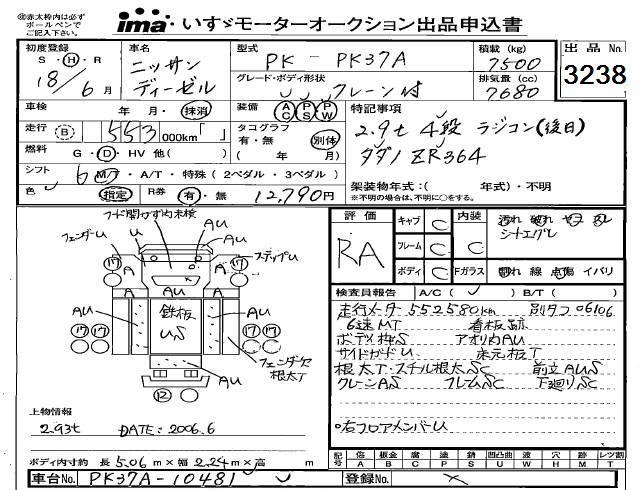 ㊟赤太枠内は必ず
ボールペンで
ご記入下さい
ima いすゞモーターオークション出品申込書
初度登録 S・H・R 18/6月
車名 ニッサン ディーゼル
型式 PK - PK37A
グレード・ボディ形状 クレーン付
積載(kg) 7500
排気量(cc) 7680
出品No. 3238
車検 年 月・抹消
装備 AC PS PW
特記事項
2.9t 4段 ラジコン(後日)
タダノ ZR364
走行(B) 553 000km「 」
タコグラフ 有・無 別体
( 年 月)
燃料 G・D・HV 他( )
シフト 6 MT・A/T・特殊(2ペダル・3ペダル)
架装物年式:( 年式)・不明
※不明の場合は、不明に○をする。
色 (指定) R券 有・無 12,790円
評価 RA
キャブ C 内装 C
フレーム C
ボディ C Fガラス
汚れ 破れ ヤケ スレ
シートエグレ
割れ 線 点傷 イバリ
フード開かず内未検
フェンダーU U AU ステップU
A A
A AU A
AU 鉄板 US AU
AU フェンダーヤ 根太T
上物情報
2.93t DATE:2006.6
検査員報告 A/C( ) B/T( )
走行メータ 552580km 別タコ 06106
6速MT 看板跡
ボディ枠S アオリ内AU
サイドガードU 床元板T
根太T・スチール根太SC 前立AUS
クレーンAS フレームSC 下廻りSC
右フロアメンバーU
ボディ内寸約 長5.06m×幅2.24m×高 m
記号 傷 A 板金 B 腐 C 塗 P 錆 S 凹凸曲 U 波 W 穴 H 跡 M レツ割 T
車台No. PK37A-10481
登録No.